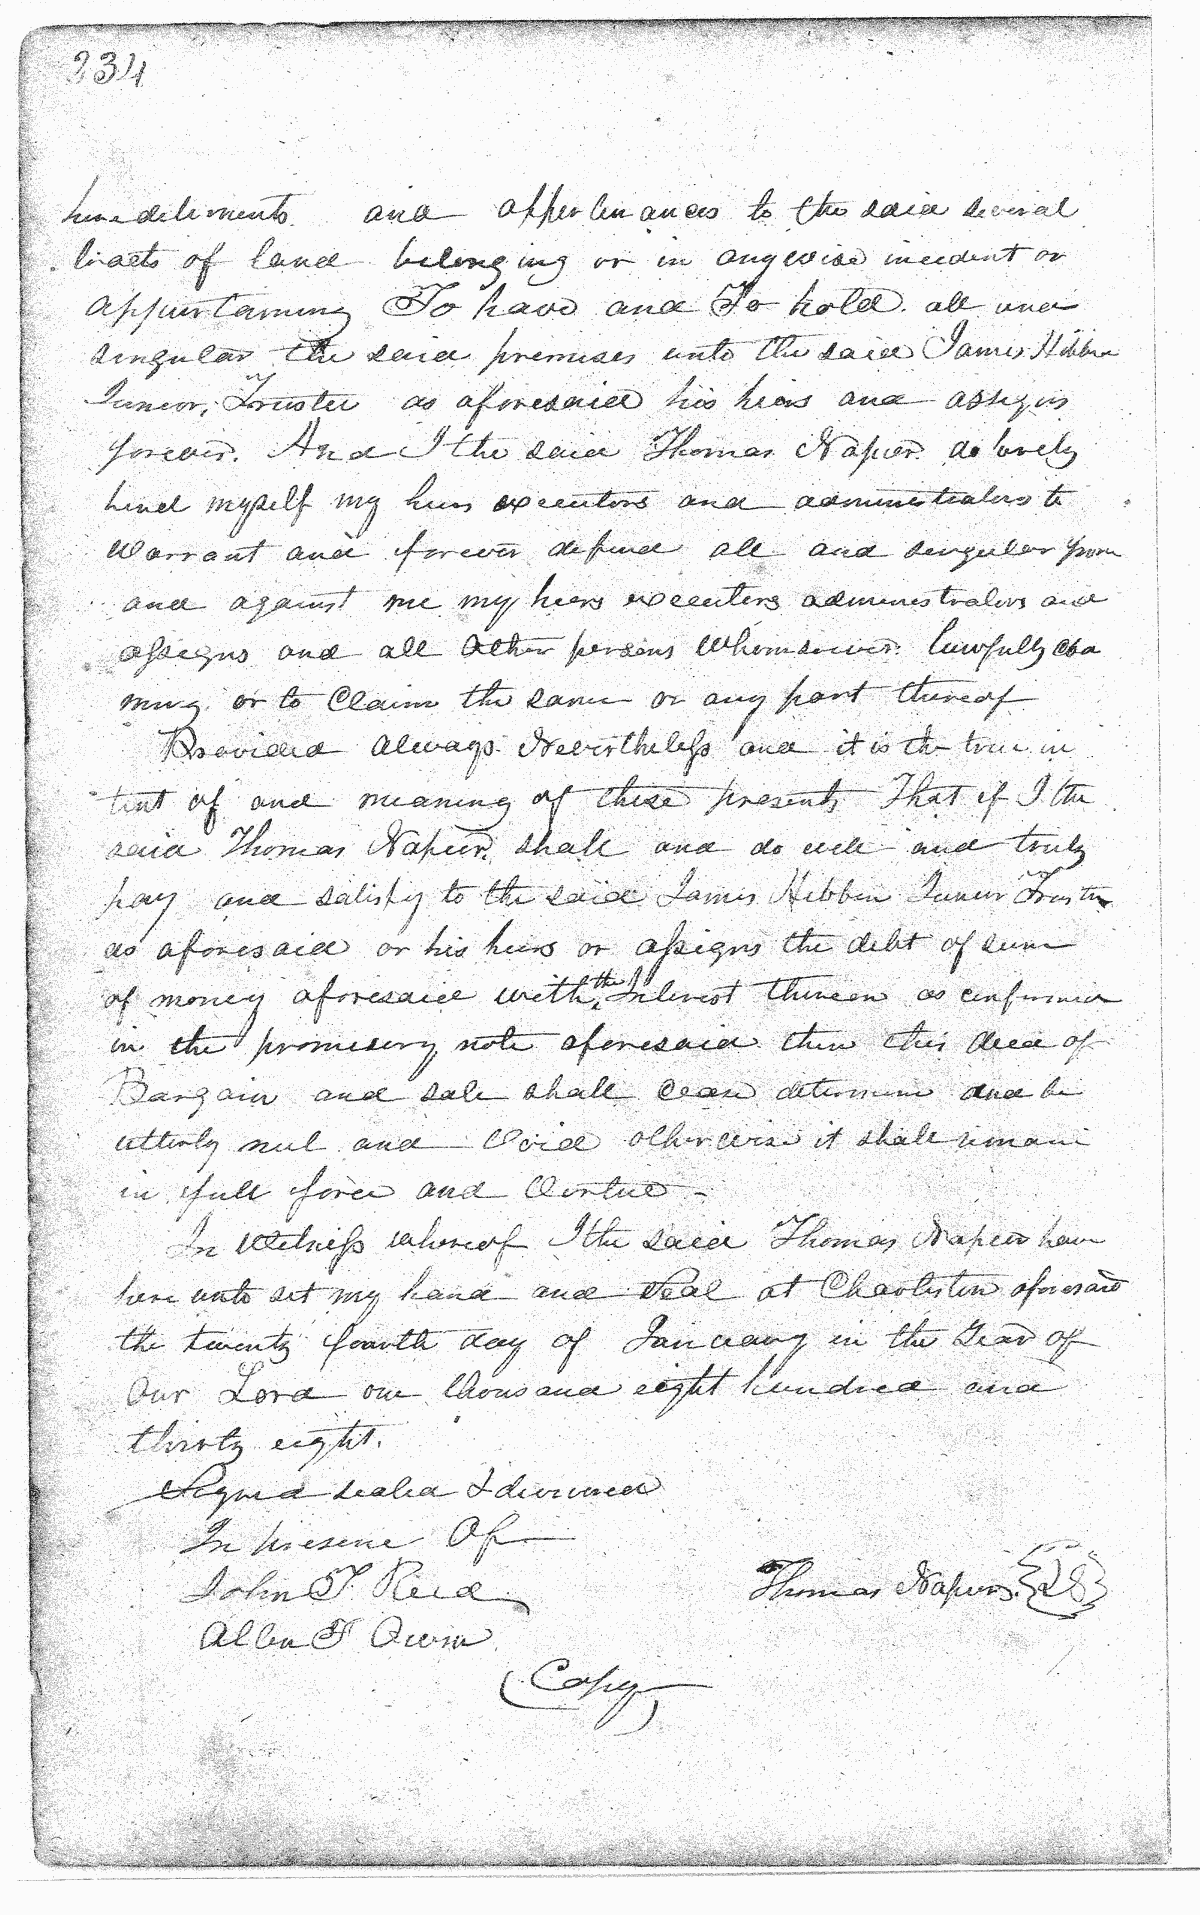 234
hereditiments and appertenances to the said several
tracts of land belonging or in anywise incident or
appurtaining To have and To hold all and
singular the said premises unto the said James Hibben
Junior, Trustee as aforesaid his heirs and assigns
forever. And I the said Thomas Napier do hereby
bind myself my heirs executors and administrators to
Warrant and forever defend all and singular from
and against me my heirs executors administrators and
assigns and all other persons Whomsoever lawfully cla
ming or to Claim the same or any part thereof
Provided Always Nevertheless and it is the true in
tent of and meaning of these presents That if I the
said Thomas Napier shall and do well and truly
pay and satisfy to the said James Hibben Junior Trustee
as aforesaid or his heirs or assigns the debt of sum
of money aforesaid with the Interest thereon as
in the promisory note aforesaid then this deed of
Bargain and sale shall cease determine and be
utterly null and Void otherwise it shall remain
in full force and Virtue -
In Witness whereof I the said Thomas Napier have
here unto set my hand and Seal at Charleston aforesaid
the twenty fourth day of January in the Year of
Our Lord one thousand eight hundred and
thirty eight.
Signed sealed & delivered
In presence Of
John T. Reid
Thomas Napier.
Allen T Owen
(Copy)